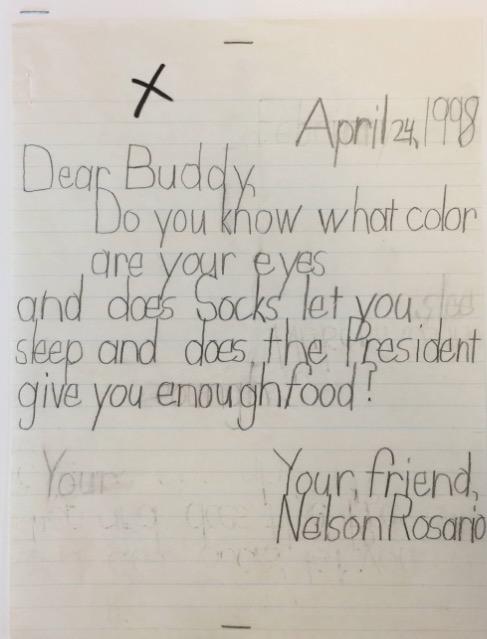 X
April 24, 1998
Dear Buddy,
Do you know what color
are your eyes
and does Socks let you
sleep and does the President
give you enough food?
Your
Your friend,
Nelson Rosario